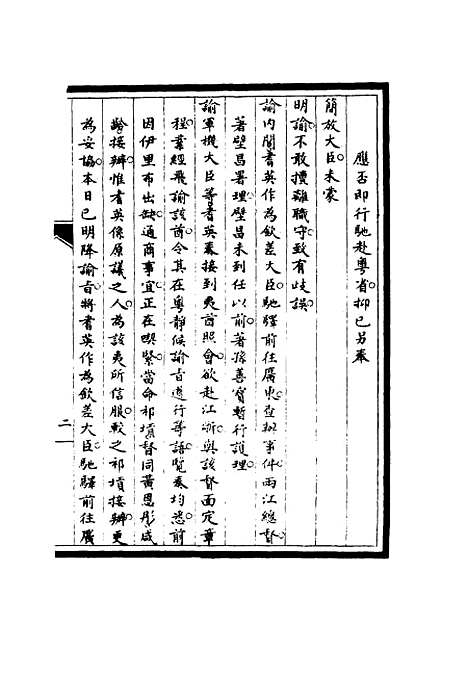 應否即行馳赴粵省抑已另奉
簡放大臣未蒙
明諭不敢擅離職守致有歧誤
諭內閣耆英作為欽差大臣馳驛前往廣東查辦事件兩江總督
著璧昌署理璧昌未到任以前著孫善寶暫行護理
諭軍機大臣等耆英奏接到夷酋照會欲赴江浙與該督面定章
程業經飛諭該酋令其在粵靜候諭旨遵行等語覽奏均悉前
因伊里布出缺通商事宜正在喫緊當命祁𡎴督同黃恩彤咸
齡接辦惟耆英係原議之人為該夷所信服較之祁𡎴接辦更
為妥協本日已明降諭旨將耆英作為欽差大臣馳驛前往廣
二